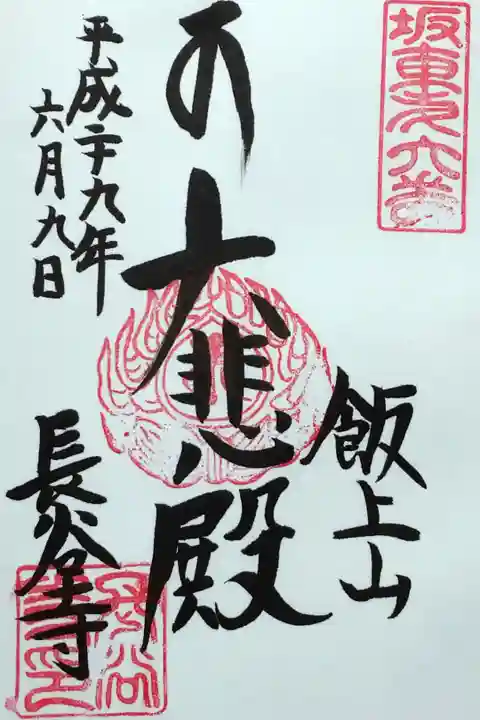 坂東第六番
飯上山
大悲殿
平成二十九年
六月九日
長谷寺